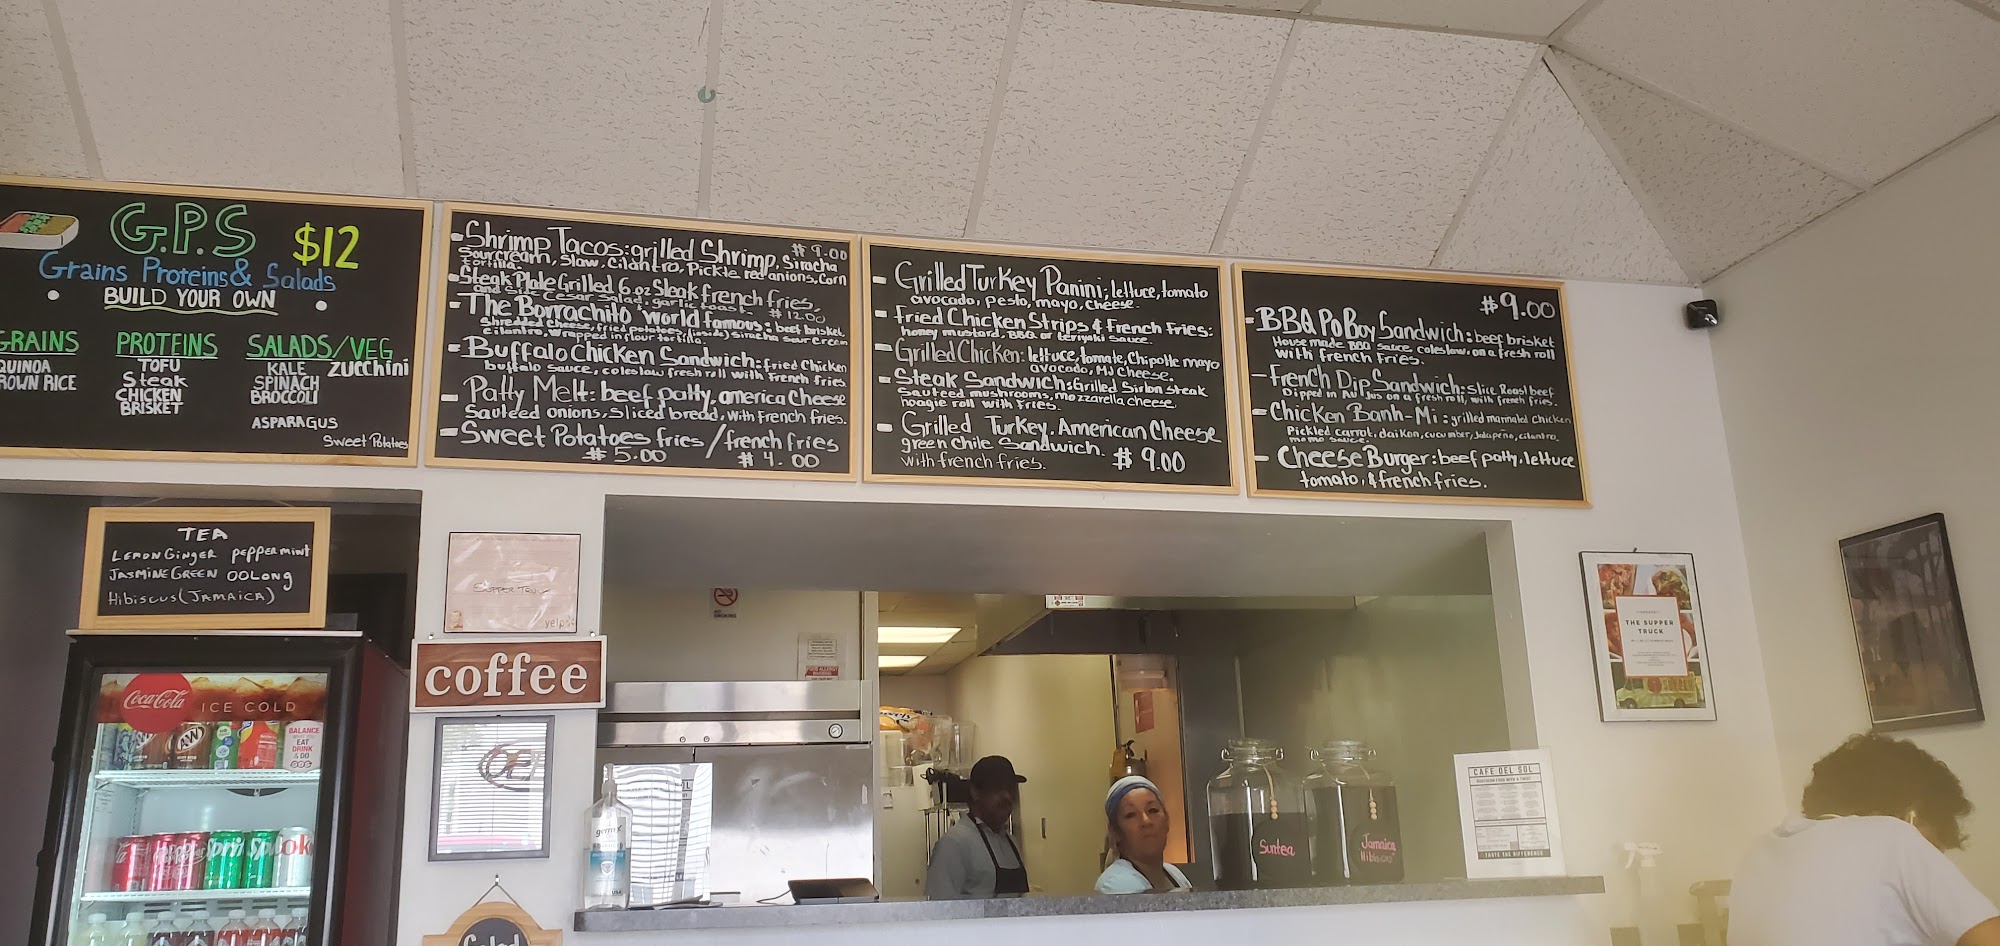 G.P.S $12
Grains Proteins & Salads
BUILD YOUR OWN
GRAINS
QUINOA
ROWN RICE
PROTEINS
TOFU
Steak
CHICKEN
BRISKET
SALADS/VEG
KALE Zucchini
SPINACH
BROCCOLI
ASPARAGUS
Sweet Potatoes
- Shrimp Tacos: grilled Shrimp, Siracha $9.00
Sour cream, Slaw, Cilantro, Pickle red onions, Corn
tortilla.
- Steak Plate Grilled 6oz Steak french fries,
and Side Cesar Salad. garlic toast $12.00
- The Borrachito 'world famous: beef brisket,
Shredded cheese, fried potatoes, (inside) siracha sour cream
Cilantro, wrapped in flour tortilla.
- Buffalo Chicken Sandwich: fried Chicken
buffalo sauce, coleslaw fresh roll with French fries
- Patty Melt: beef patty, america Cheese
Sauteed onions, sliced bread, with french fries.
- Sweet Potatoes fries / french fries
$5.00 $4.00
- Grilled Turkey Panini; lettuce, tomato
avocado, pesto, mayo, cheese.
- Fried Chicken Strips & French Fries:
honey mustard, BBQ or teriyaki sauce.
- Grilled Chicken: lettuce, tomate, Chipotle mayo
avocado, MJ Cheese.
- Steak Sandwich: Grilled Sirlon steak
Sauteed mushrooms, mozzarella cheese,
hoagie roll with Fries.
- Grilled Turkey, American Cheese
green chile Sandwich.
with french fries. $9.00
$9.00
- BBQ Po Boy Sandwich: beef brisket
House made BBQ sauce, coleslaw, on a fresh roll
with french Fries.
- French Dip Sandwich: Slice Roast beef
Dipped in AU Jus on a fresh roll, with french fries.
- Chicken Banh-Mi: grilled marinated chicken
Pickled carrot, daikon, cucumber, Jalapeño, cilantro,
momo sauce.
- Cheese Burger: beef patty, lettuce
tomato, & french fries.
TEA
LEMON GINGER PEPPERMINT
JASMINE GREEN OOLONG
Hibiscus (JAMAICA)
SUPPER TRUCK
yelp
coffee
Coca-Cola
ICE COLD
A&W
BALANCE
WHAT YOU
EAT
DRINK
& DO
germ-x
Suntea
Jamaica
Hibiscus
CAFE DEL SOL
TASTE THE DIFFERENCE
THE SUPPER
TRUCK
NO
SMOKING